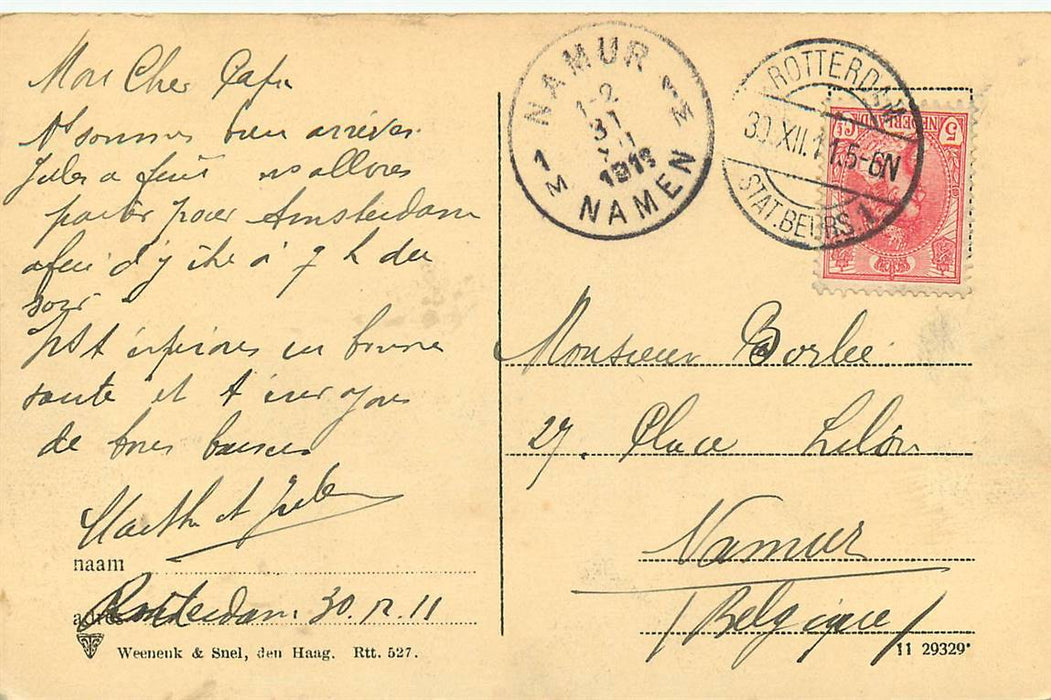 Mon Cher Papa
Ns sommes bien arrivés
Jules a fini ns allons
partir pour Amsterdam
afin d'y être à 7 h du
soir
en bonne
santé et t'envoyons
de bons baisers
Marthe et Jules
naam
adres Rotterdam 30.12.11
Weenenk & Snel, den Haag. Rtt. 527.
NAMUR
1-2
31
XII
NAMEN
1 M
ROTTERDAM
30.XII.11.5-6N
STAT.BEURS. 1
NEDERLAND
5 Ct
Monsieur Borlée
27. Place Lilon
Namur
(Belgique)
11 29329*